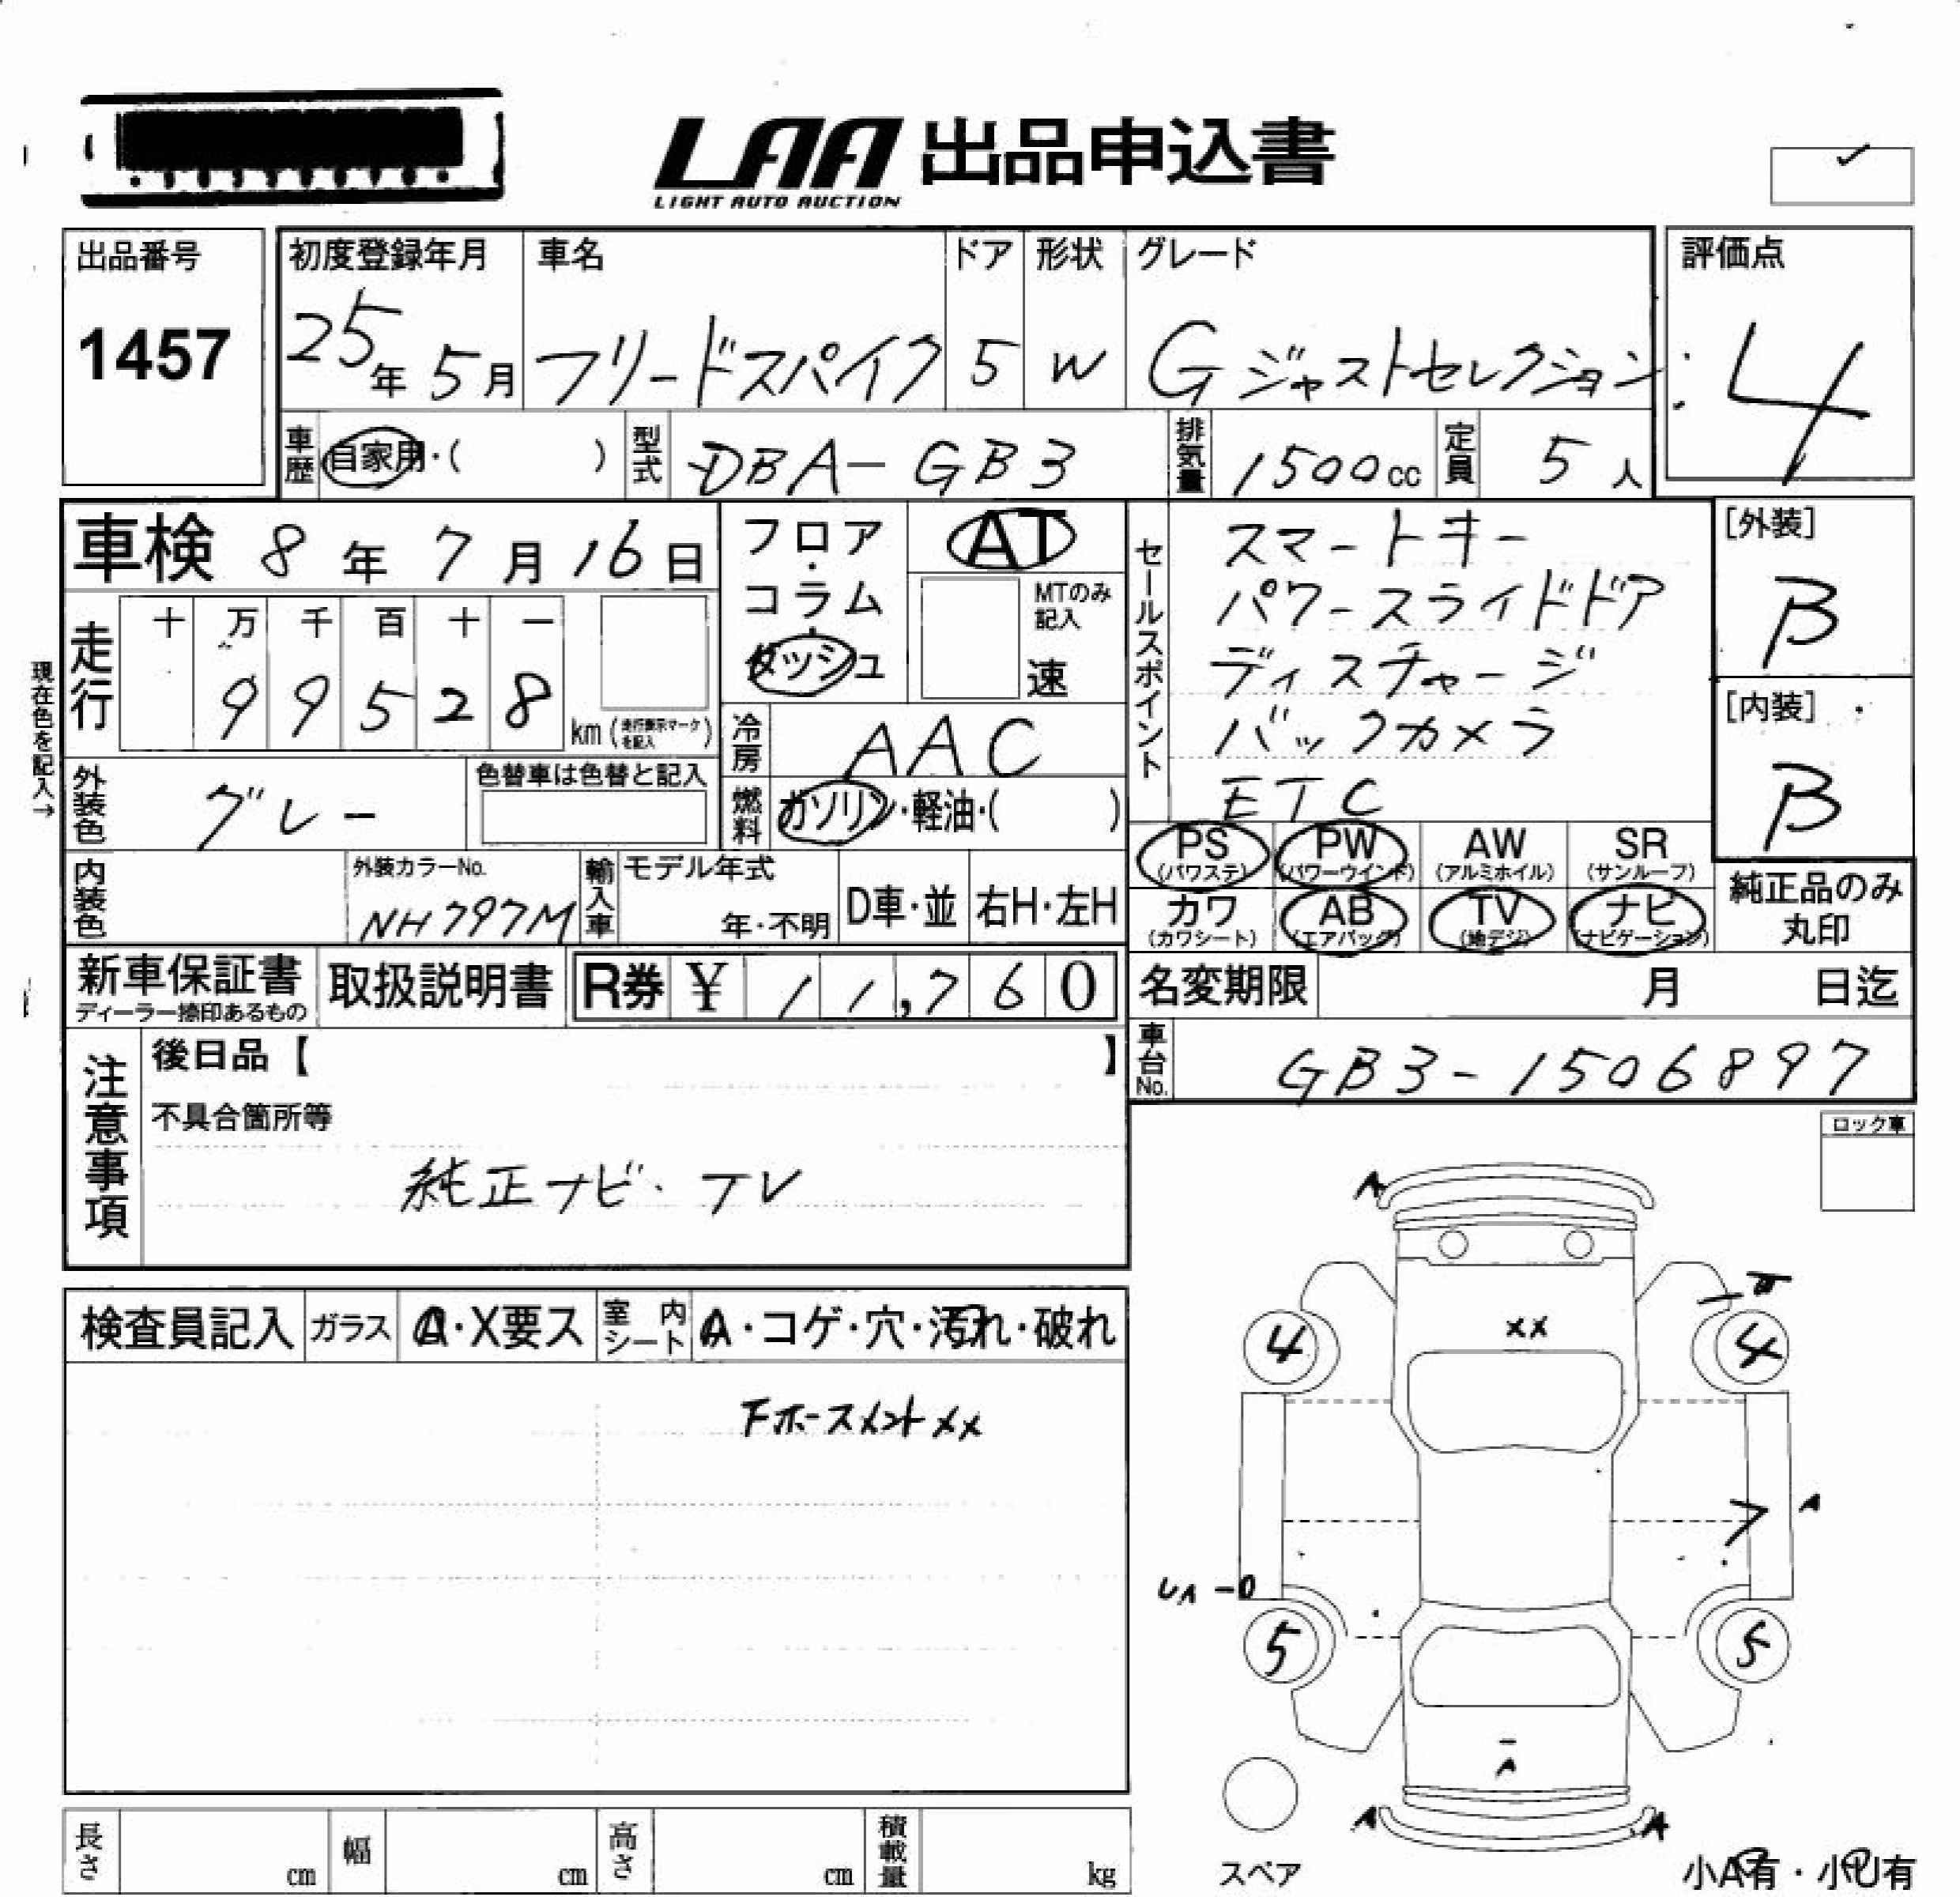 LAA 出品申込書
LIGHT AUTO AUCTION
出品番号
1457
初度登録年月
25年5月
車名
フリードスパイク
ドア
5
形状
W
グレード
Gジャストセレクション
評価点
4
車歴
自家用・( )
型式
DBA-GB3
排気量
1500cc
定員
5人
車検 8年7月16日
フロア・コラム・ダッシュ
AT
MTのみ記入
速
セールスポイント
スマートキー
パワースライドドア
ディスチャージ
バックカメラ
ETC
[外装]
B
[内装]
B
現在色を記入→
走行
十 万 千 百 十 一
9 9 5 2 8
km(走行表示マークを記入)
冷房
AAC
外装色
グレー
色替車は色替と記入
燃料
ガソリン・軽油・( )
PS (パワステ)
PW (パワーウインド)
AW (アルミホイル)
SR (サンルーフ)
カワ (カワシート)
AB (エアバック)
TV (地デジ)
ナビ (ナビゲーション)
純正品のみ丸印
内装色
外装カラーNo.
NH797M
輸入車
モデル年式
年・不明
D車・並
右H・左H
新車保証書
ディーラー捺印あるもの
取扱説明書
R券 ¥ 11,760
名変期限 月 日迄
車台No.
GB3-1506897
注意事項
後日品【 】
不具合箇所等
純正ナビ・TV
ロック車
検査員記入
ガラス
A・X要ス
室内シート
A・コゲ・穴・汚れ・破れ
下ホースメント XX
A
XX
4
4
A
7
UA -0
5
5
A
A
A
スペア
小A有・小U有
長さ cm
幅 cm
高さ cm
積載量 kg